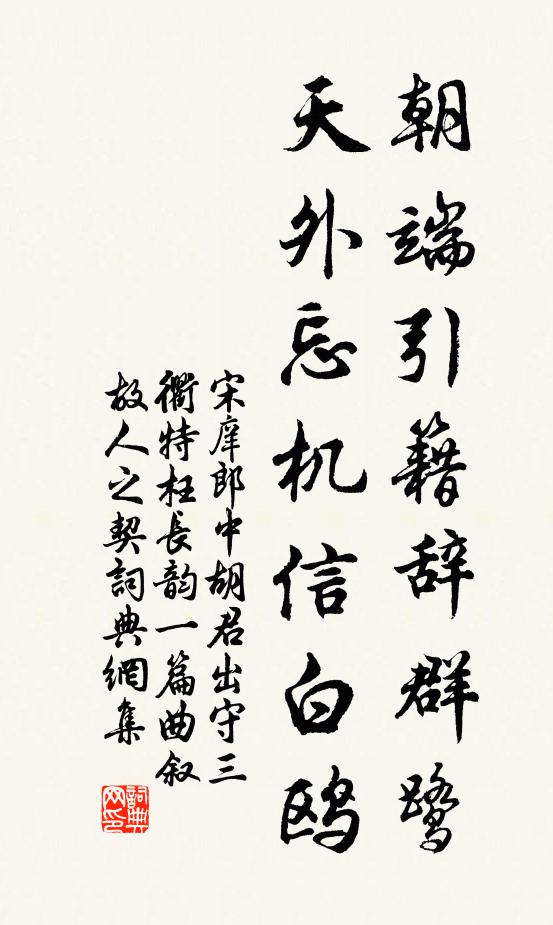 朝端引籍辞群鹭
天外忘机信白鸥
宋庠郎中胡君出守三
衢特枉長韵一篇曲叙
故人之契詞典網集
詞典
网印